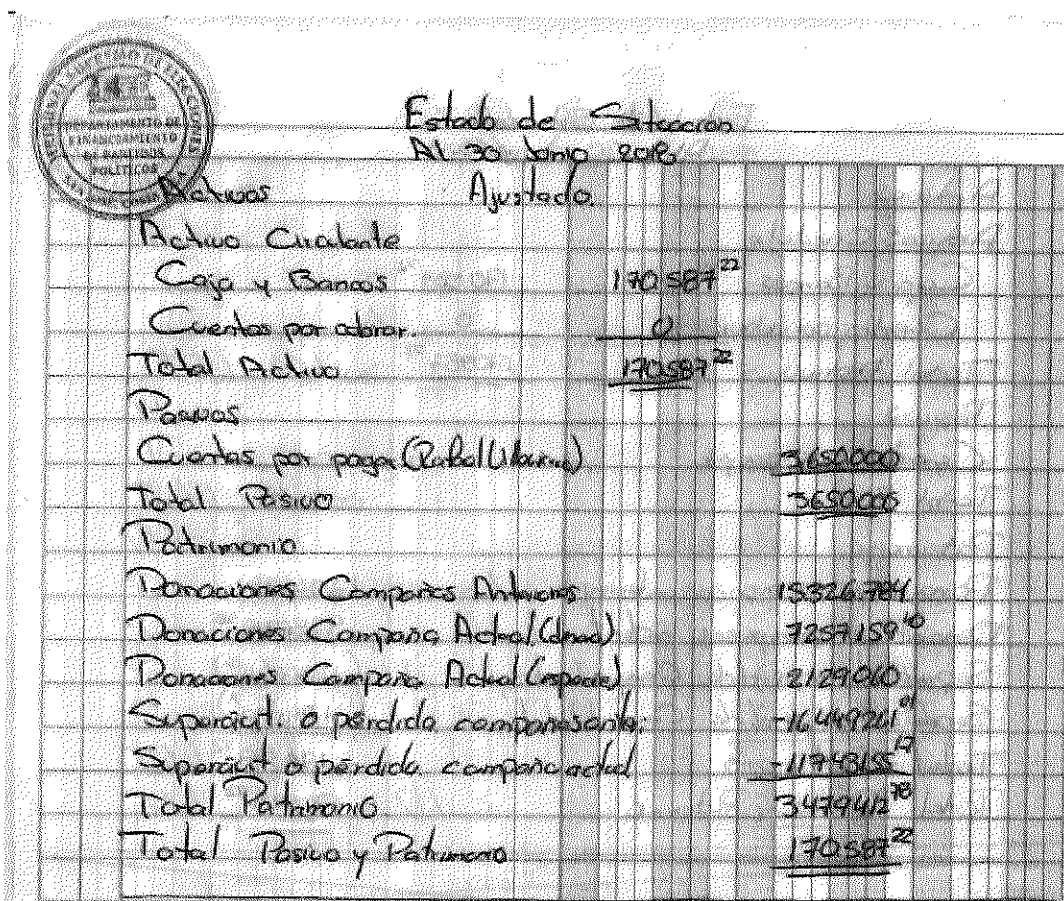 TRIBUNAL SUPREMO DE ELECCIONES
DEPARTAMENTO DE
FINANCIAMIENTO
DE PARTIDOS
POLÍTICOS
Estado de Situacion
Al 30 Junio 2018
Activos Ajustado.
Activo Circulante
Caja y Bancos 170.587 22
Cuentas por cobrar. 0
Total Activo 170.587 22
Pasivos
Cuentas por pagar 3650000
Total Pasivo 3650000
Patrimonio
Donaciones Campañas Anteriores 15.326.784
Donaciones Campaña Actual 7257.159 10
Donaciones Campaña Actual (especie) 2129060
Superávit. o pérdida campañas ante: -16449261 01
Superávit o pérdida campaña actual -11743155
Total Patrimonio 3479412 78
Total Pasivo y Patrimonio 170.587 22